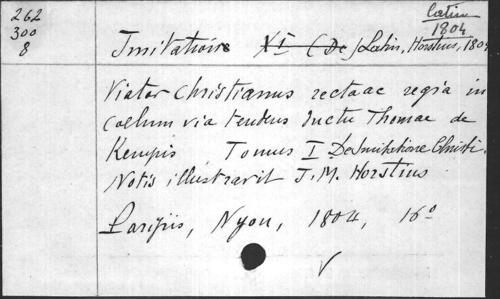 262
300
8
Latin
1804
Imitatione XI (De) Latin, Horstius, 1804
Viator Christianus rectaac regia in
coelum via tendens ductu Thomae de
Kempis Tomus I De Imitatione Christi.
Notis illustravit J. M. Horstius
Parisiis, Nyon, 1804, 16º